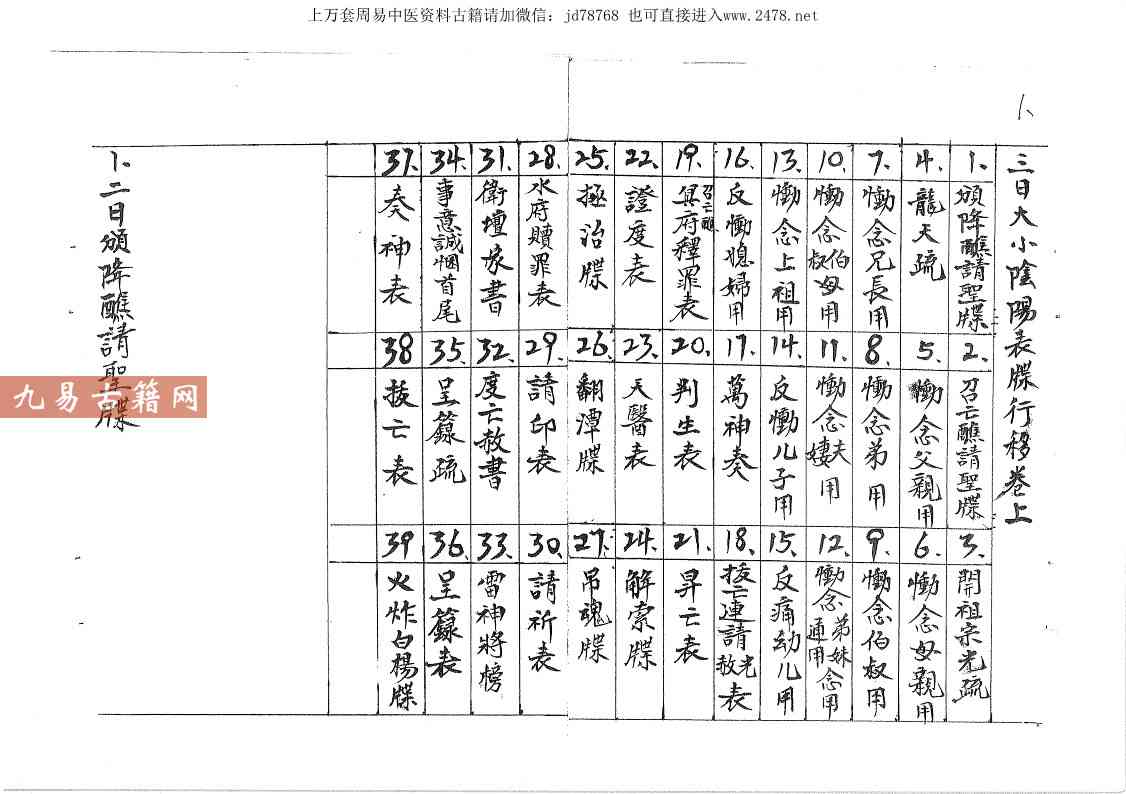 上万套周易中医资料古籍请加微信：jd78768 也可直接进入www.2478.net
三日大小陰陽表牒行移卷上
1. 頒降醮請聖牒
2. 召亡醮請聖牒
3. 開祖宗光疏
4. 龍天疏
5. 慟念父親用
6. 慟念母親用
7. 慟念兄長用
8. 慟念弟用
9. 慟念伯叔用
10. 慟念伯叔母用
11. 慟念夫妻用
12. 慟念弟妹念用通用
13. 慟念上祖用
14. 反慟儿子用
15. 反痛幼儿用
16. 反慟媳婦用
17. 萬神奏
18. 拔亡連請赦光表
19. 召亡醮冥府釋罪表
20. 判生表
21. 昇亡表
22. 證度表
23. 天醫表
24. 解索牒
25. 拯治牒
26. 翻潭牒
27. 吊魂牒
28. 水府贖罪表
29. 請印表
30. 請祈表
31. 衛壇家書
32. 度亡赦書
33. 雷神將榜
34. 事意誠悃首尾
35. 呈籙疏
36. 呈籙表
37. 奏神表
38 拔亡表
39 火炸白楊牒
1. 二日頒降醮請聖牒
九易古籍网